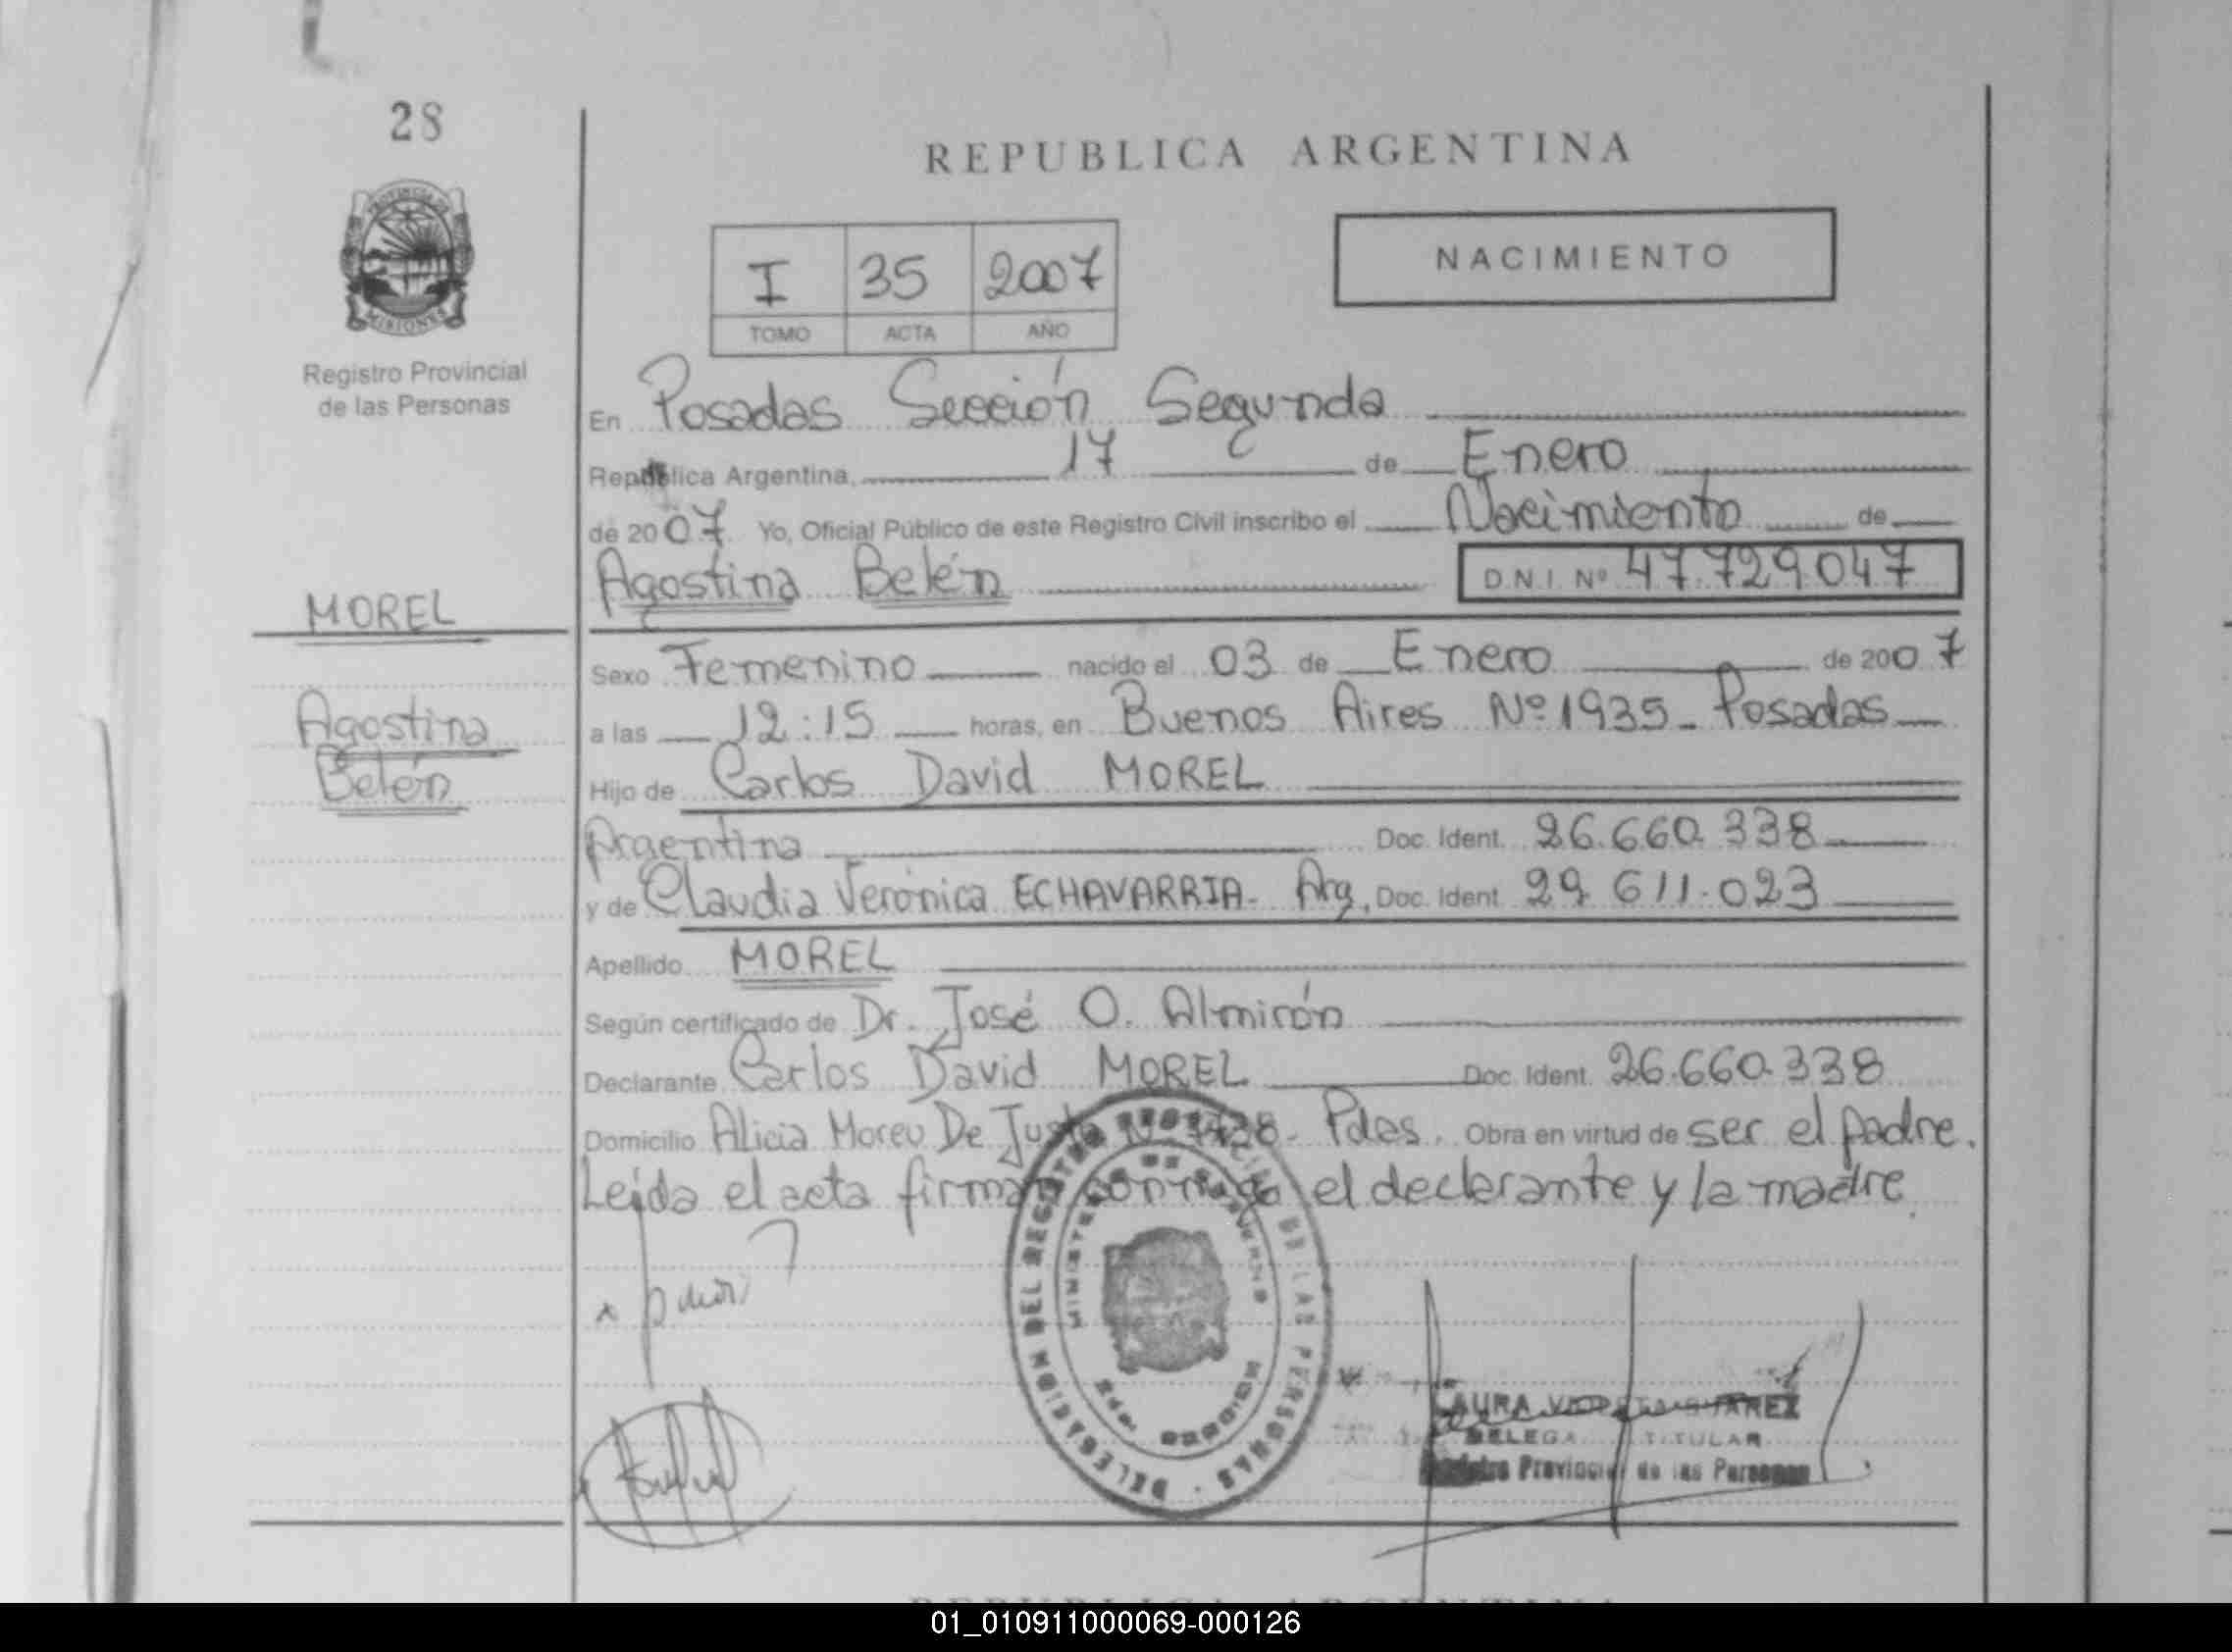 28
REPUBLICA ARGENTINA
PROVINCIA DE
MISIONES
Registro Provincial
de las Personas
I 35 2007
TOMO ACTA AÑO
NACIMIENTO
En Posadas Sección Segunda
República Argentina, 17 de Enero
de 2007. Yo, Oficial Público de este Registro Civil inscribo el Nacimiento de
Agostina Belén D.N.I. Nº 47.729.047
MOREL
Sexo Femenino nacido el 03 de Enero de 2007
Agostina
a las 12:15 horas, en Buenos Aires Nº 1935 - Posadas
Belén
Hijo de Carlos David MOREL
Argentina Doc. Ident. 26.660.338
y de Claudia Verónica ECHAVARRIA - Arg. Doc. Ident. 29.611.023
Apellido MOREL
Según certificado de Dr. José O. Almirón
Declarante Carlos David MOREL Doc. Ident. 26.660.338
Domicilio Alicia Moreu De Justo - Pdas. Obra en virtud de ser el padre.
Leída el acta firman conmigo el declarante y la madre.
DELEGACION DEL REGISTRO DE LAS PERSONAS
MINISTERIO DE GOBIERNO
MISIONES
LAURA
TITULAR
Provincial de las Personas
REPUBLICA ARGENTINA
01_010911000069-000126